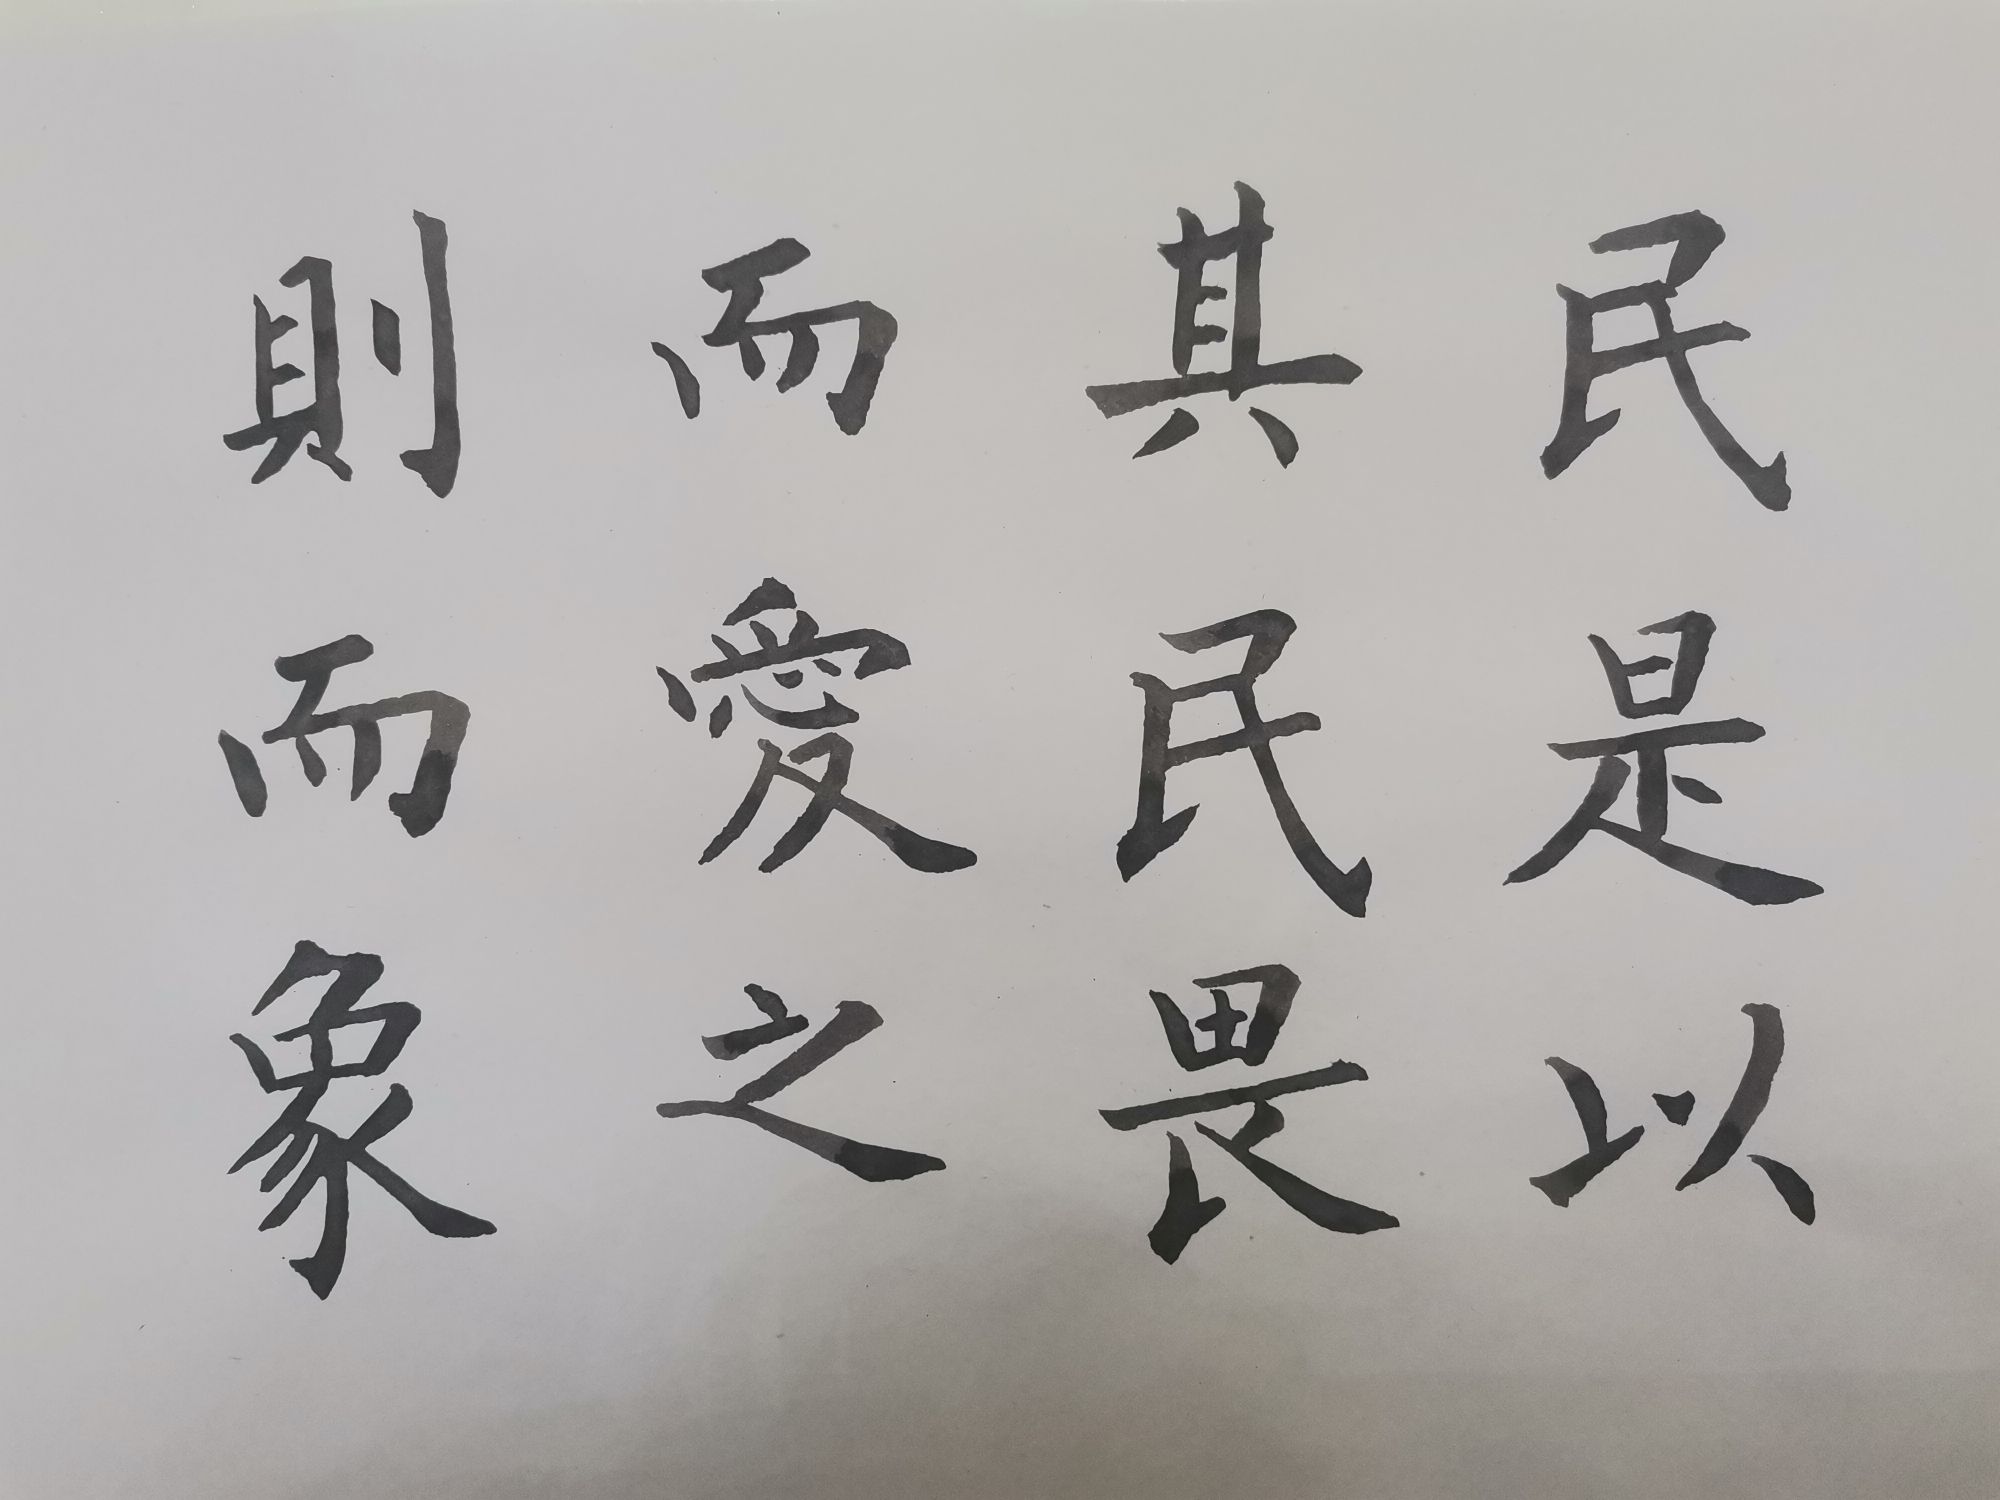 民是以
其民畏
而愛之
則而象